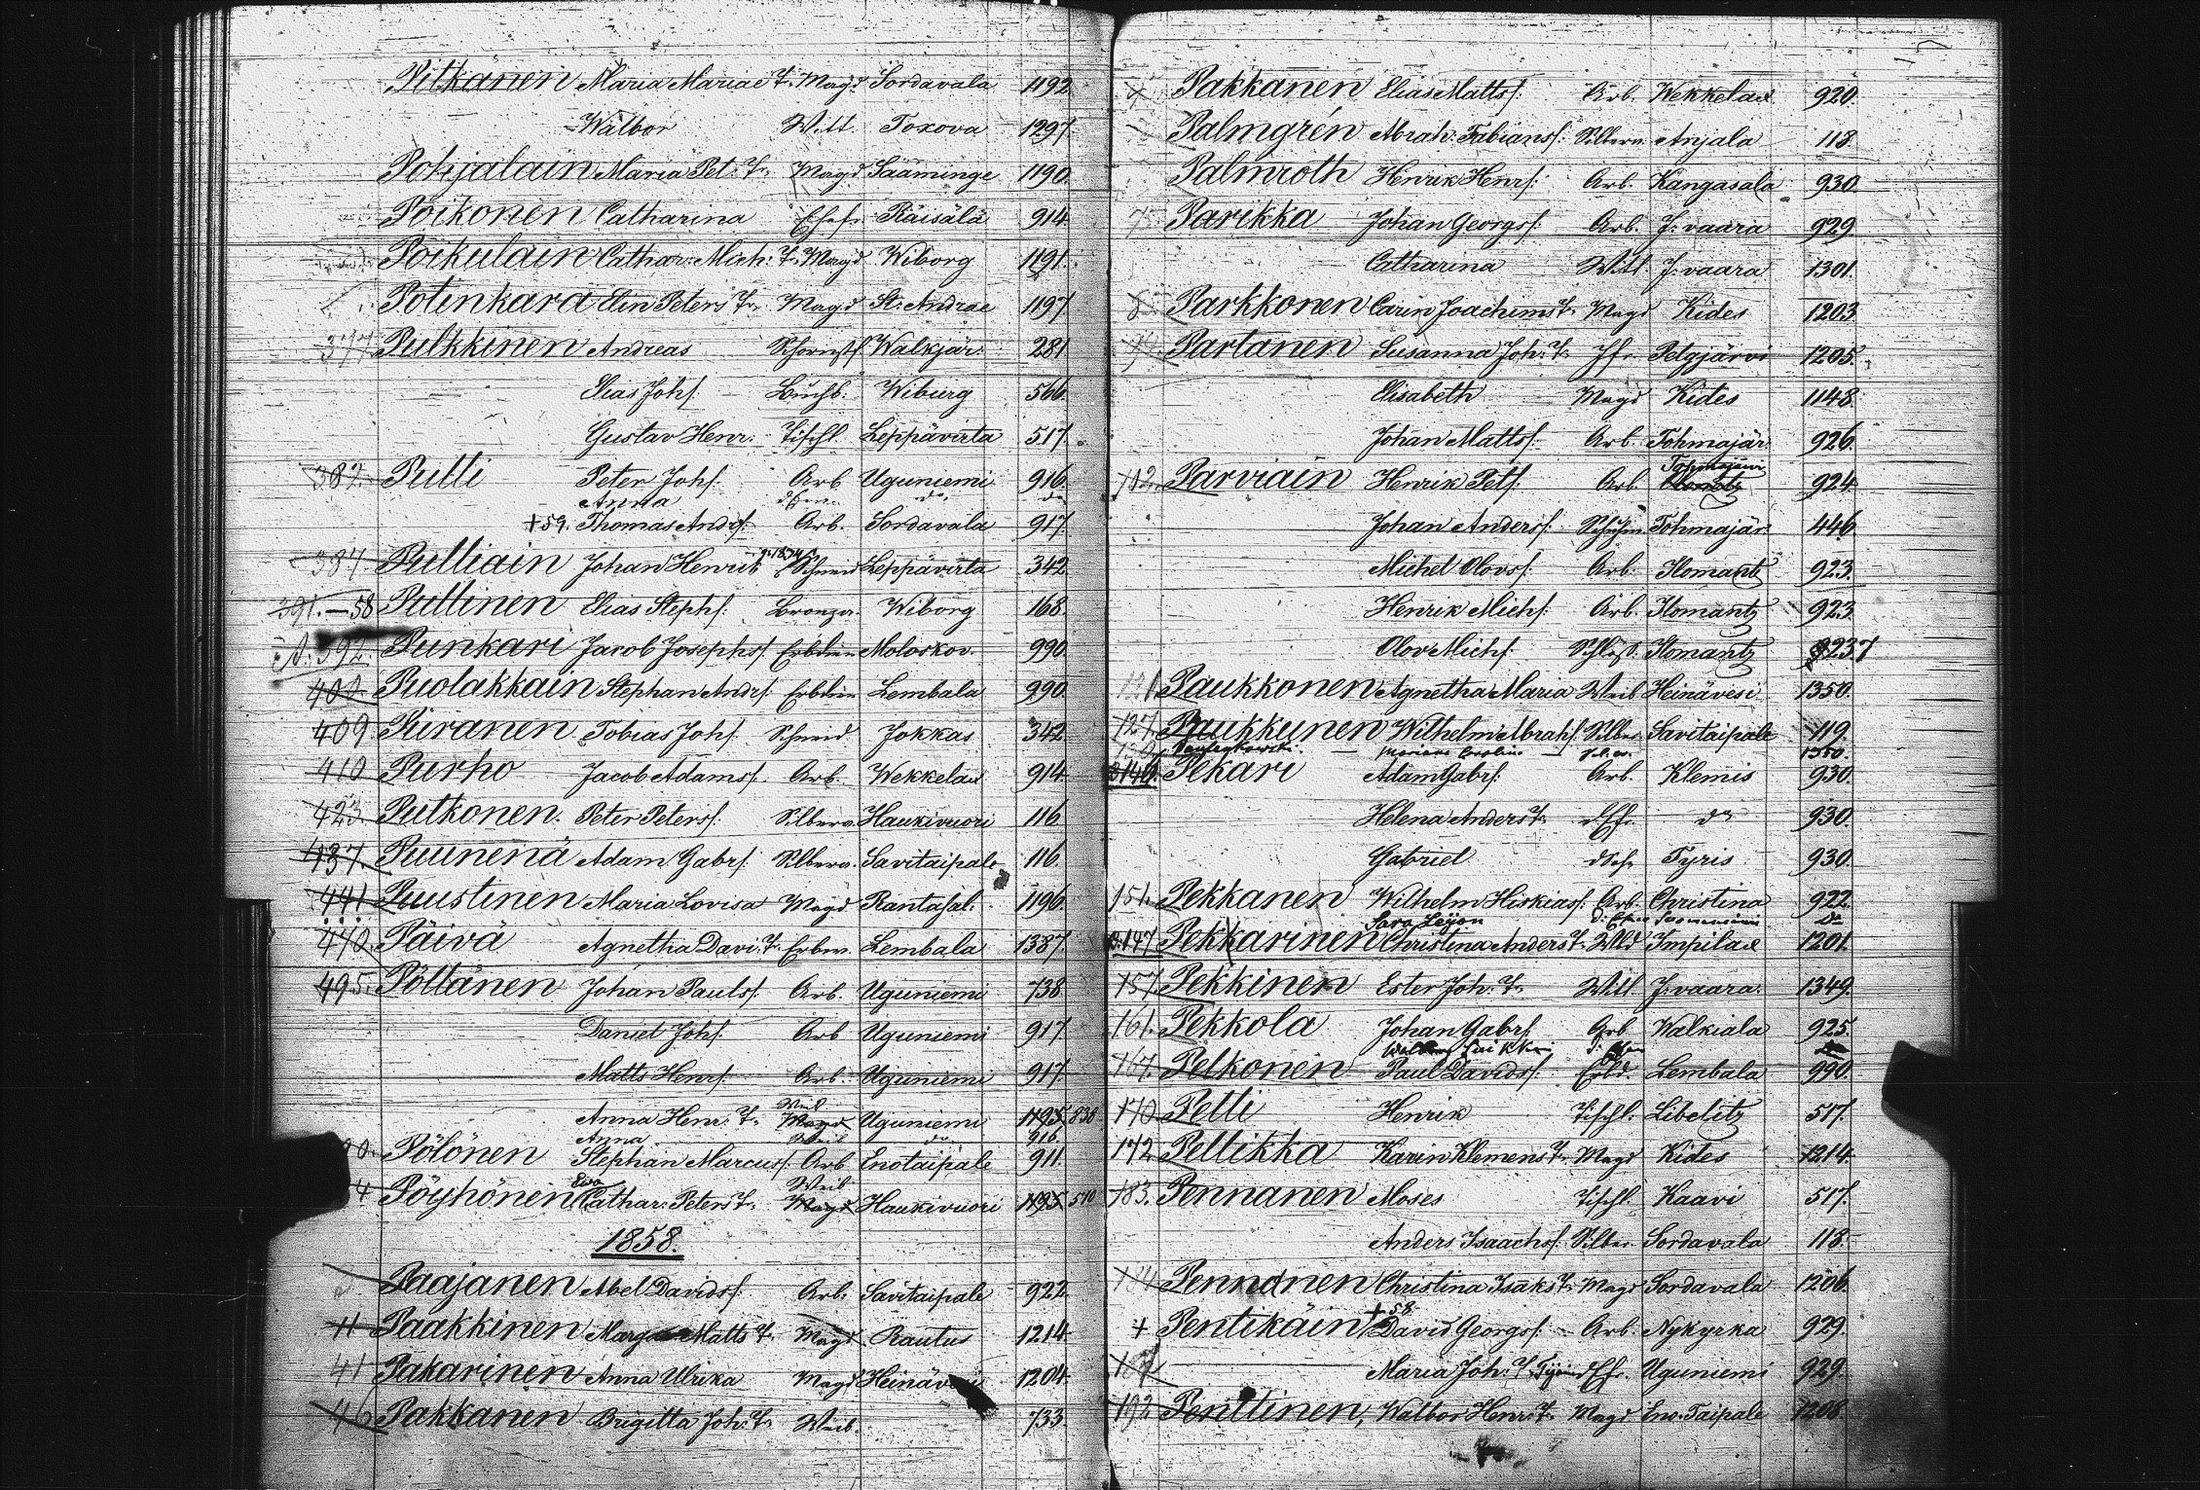 Pitkänen Maria Mariae T. Magd Sordavala 1192
Walbor Witt. Toxova 1297.
Pohjalain Maria Pet: T. Magd Sääminge 1190.
Poikonen Catharina Ehefr Räisälä 914.
Poikulain Cathar: Mich: T. Magd Wiborg 1191.
Potinkara Elin Peters T. Magd St: Andrae 1197.
377 Pulkkinen Andreas Schornstf. Walkjär: 281.
Elias Johs. Buchb: Wiburg 566.
Gustav Henr. Tischl. Leppävirta 517.
382. Pulli Peter Johs. Arb Uguniemi 916.
Anna do do
+59. Thomas Andrs. Arb. Sordavala 917.
384 Pulliain Johan Henrik Schneid Leppävirta 342.
391.—58 Pullinen Elias Stephs. Bronzar. Wiborg 168.
A. 392. Punkari Jacob Josephs. Erbdien Moloskov. 990.
400. Puolakkain Stephan Andrs. Erbdien Lembala 990.
409. Puranen Tobias Johs. Schneid Jokkas 342.
410 Purho Jacob Adamss. Arb. Wekkelax 914.
423. Putkonen. Peter Peters. Silberar. Haukivuori 116.
437. Puunenä Adam Gabrs. Silberar. Savitaipale 116.
441. Puustinen Maria Lovisa Magd Rantasal. 1196.
470. Päivä Agnetha Davi: T. Erbm. Lembala 1387.
495. Pöllänen Johan Pauls. Arb. Uguniemi 738
Daniel Johs. Arb Uguniemi 917.
Matts Henrs. Arb. Uguniemi 917.
Weib
Anna Henr: T. Magd Uguniemi 1195 838
Anna Weib do 916.
Pölönen Stephan Marcuss. Arb Enotaipale 911.
Eva Weib
4 Pöyhönen Cathar: Peters T. Magd Haukivuori 1195 510
1858.
Paajanen Abel Davids. Arb. Savitaipale 922.
11 Paakkinen Matts T. Magd Rautus 1214.
41 Pakarinen Anna Ulrika Magd 1204.
46 Pakkanen Brigitta Joh: T. Weib. 733.
Pakkanen Elias Mattss. Arb. Wekkelax 920.
Palmgrén Abrah: Fabianss: Silberar. Anjala 118.
Palmroth Henrik Henrs: Arb. Kangasala 930.
75 Parikka Johan Georgs. Arb. J: vaara 929.
Catharina Witt. J: vaara 1301.
Parkkonen Carin Joachims T. Magd Kides 1203.
Partanen Susanna Joh: T. Jfr Pelgjärvi 1205.
Elisabeth Magd Kides 1148.
Johan Mattss. Arb. Tohmajär. 926.
Tohmajärvi
112. Parviain Henrik Pets. Arb. Ilomantz 924.
Johan Anderss. Schuhm. Tohmajär: 446.
Michel Olovs. Arb. Ilomantz 923.
Henrik Michs. Arb. Ilomantz 923.
Olov Michs. Ilomantz 237
121 Paukkonen Agnetha Maria Weib Heinävesi 1350.
127. Paukkunen Wilhelm Abrahs. Silber. Savitaipale 119.
1350.
146. Pekari Adam Gabrs. Arb. Klemis 930.
Helena Anders T. d.Efr. do 930.
Gabriel Tyris 930.
151. Pekkanen Wilhelm Hiskiass. Arb. Christina 922.
Sara Leijon do
147 Pekkarinen Christina Anders T. Wld Impilax 1201.
157. Pekkinen Ester Joh: T. Witt J: vaara 1349.
161. Pekkola Johan Gabrs. Arb Walkiala 925.
167. Pelkonen Paul Davids. Erbd. Lembala 990.
170 Pelli Henrik Tischl. Libelitz 517.
172 Pellikka Karin Klemens T. Magd Kides 1214.
183. Pennanen Moses Tischl. Kaavi 517.
Anders Isaachs. Silber. Sordavala 118.
184 Pennonen Christina Isaks T. Magd Sordavala 1206.
+58.
+ Pentikäin David Georgs. Arb. Nykyrka 929.
187 Maria Joh: T. d.Efr. Uguniemi 929.
192 Penttinen, Walbor Henr: T. Magd Eno-Taipale 1208.